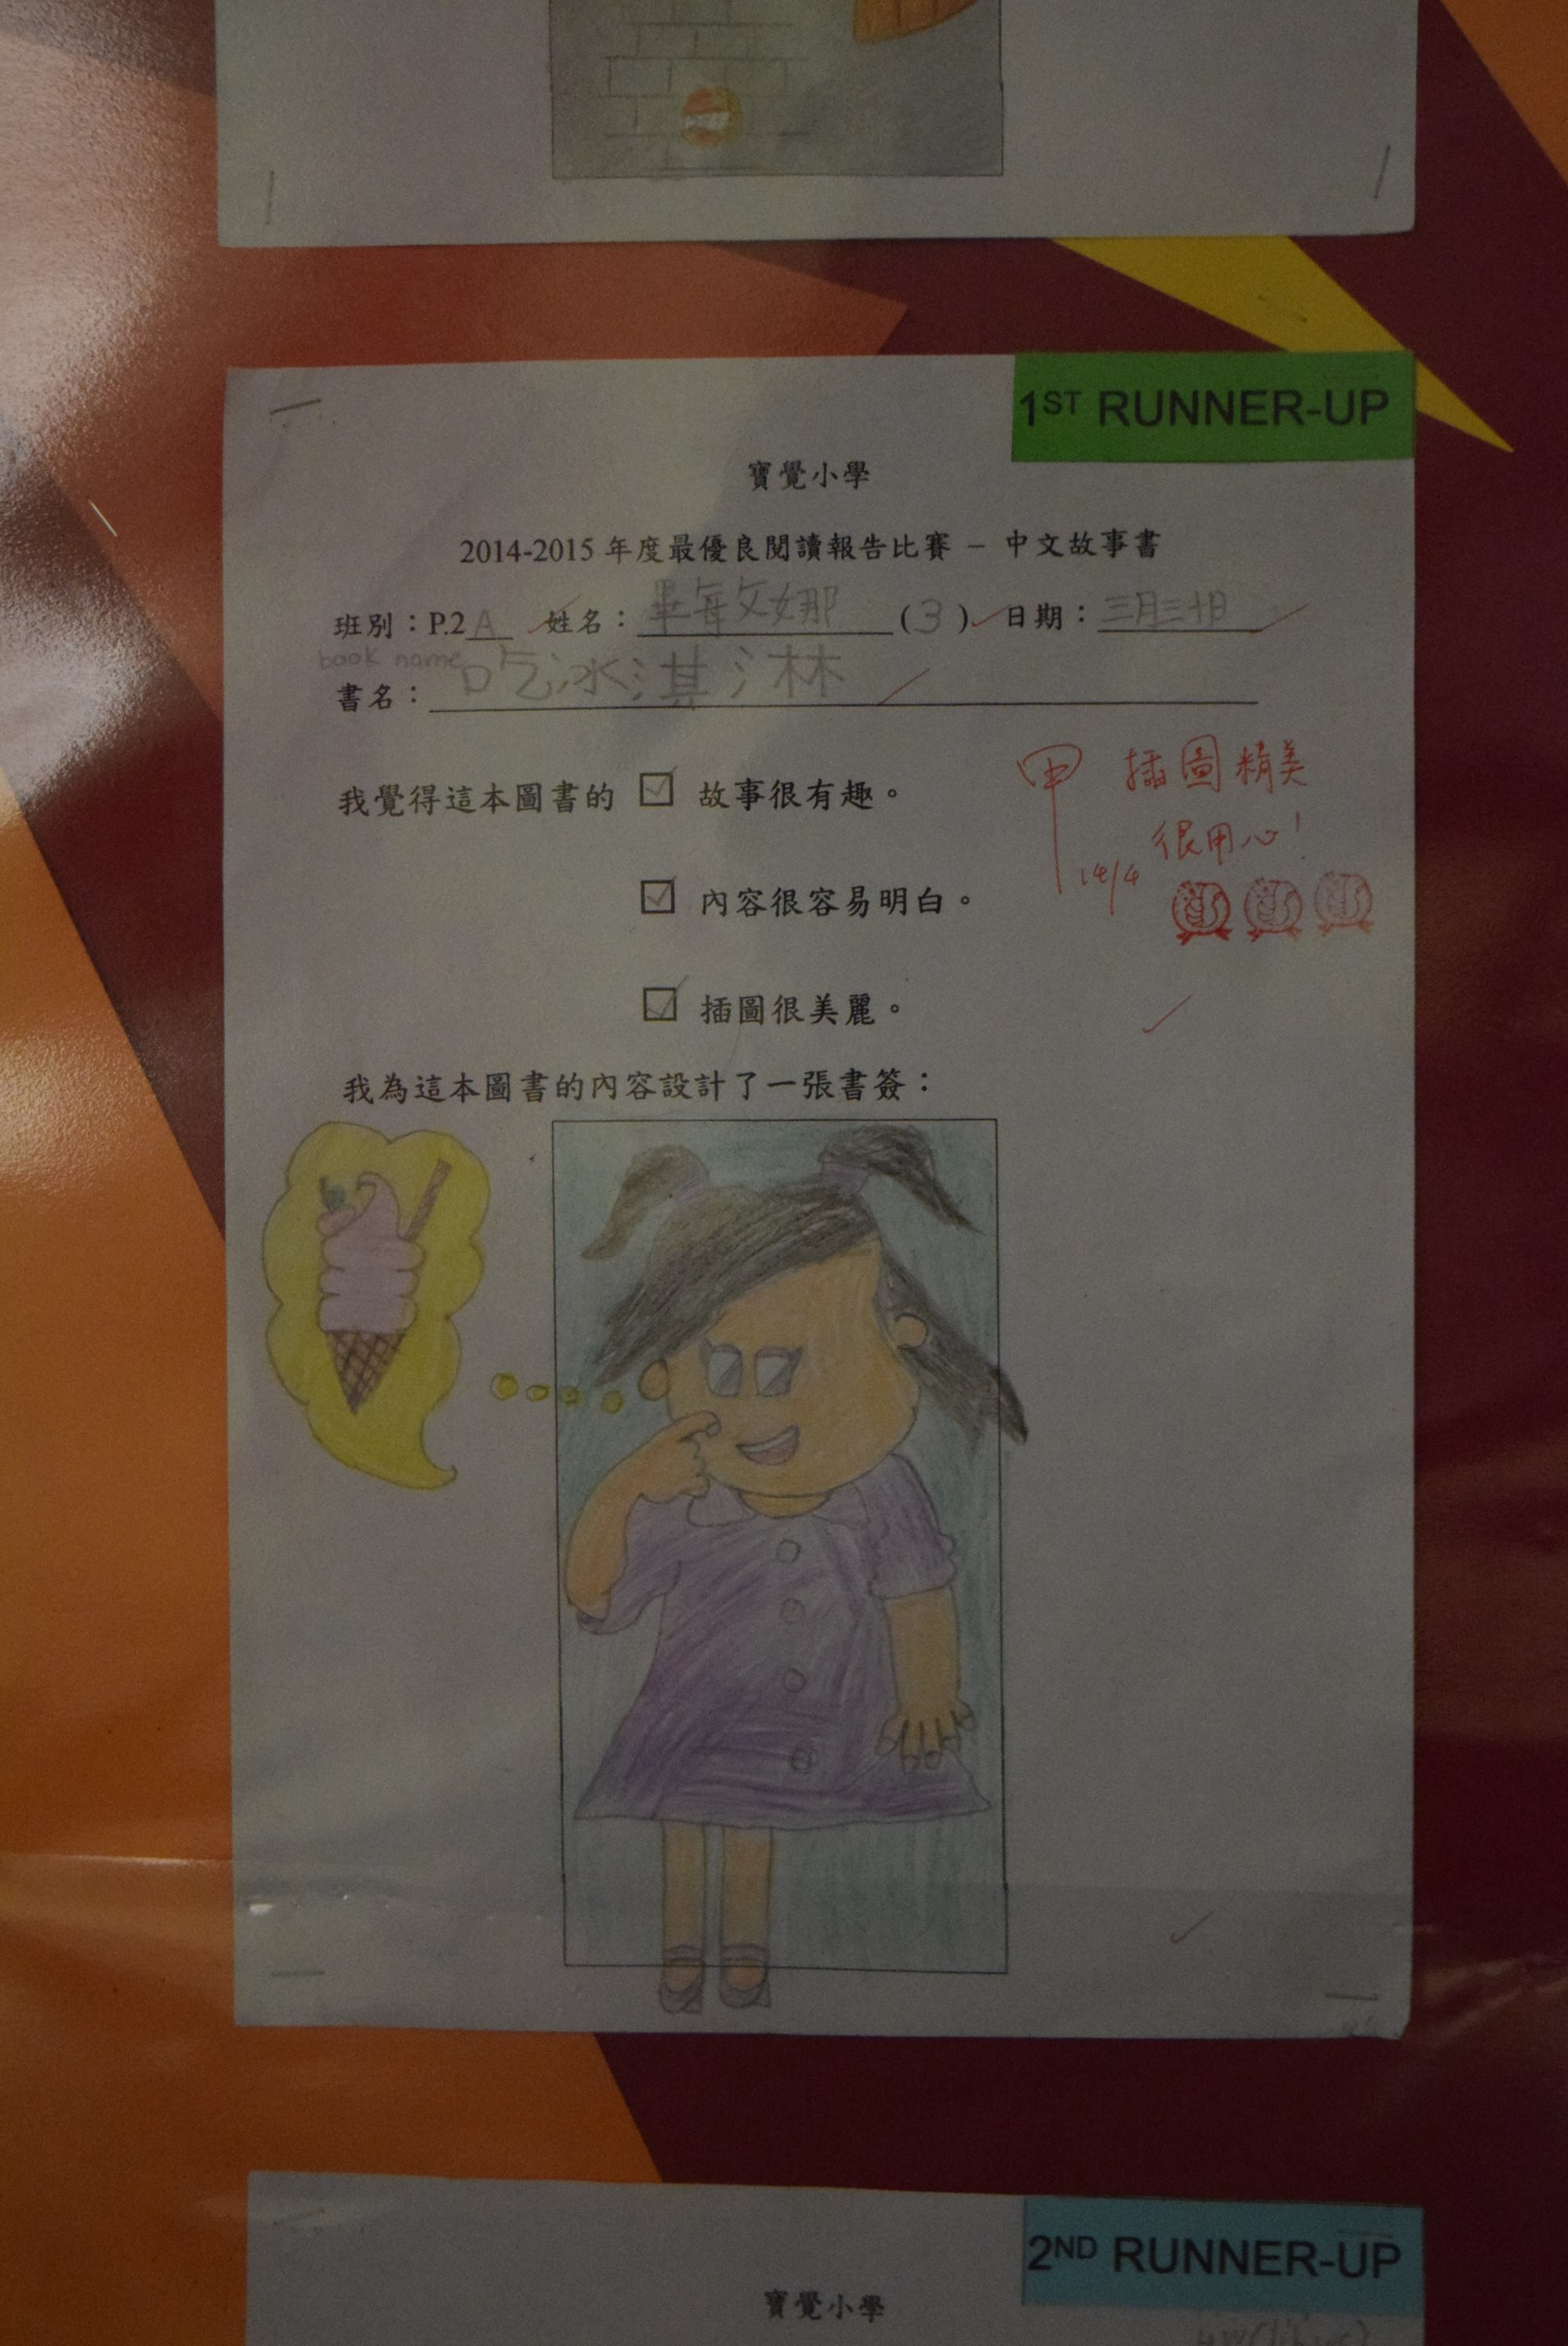 1ST RUNNER-UP
寶覺小學
2014-2015 年度最優良閱讀報告比賽 – 中文故事書
班別：P.2A 姓名：畢每文娜 (3) 日期：三月三十日
book name
書名：吃冰淇淋
我覺得這本圖書的 ☑ 故事很有趣。
甲 插圖精美
很用心！
14/4
☑ 內容很容易明白。
☑ 插圖很美麗。
我為這本圖書的內容設計了一張書簽：
2ND RUNNER-UP
寶覺小學